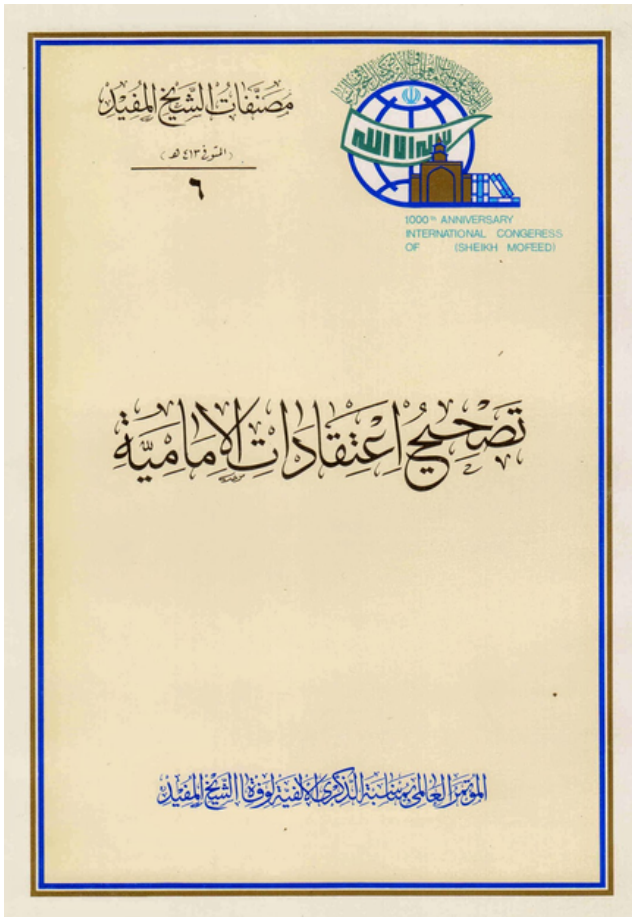 مصنفات الشيخ المفيد
(المتوفى ٤١٣ هـ)
٦
لا اله الا الله
1000th ANNIVERSARY
INTERNATIONAL CONGERESS
OF (SHEIKH MOFEED)
تَصْحِيحُ اعْتِقَادَاتِ الْإِمَامِيَّةِ
المؤتمر العالمي بمناسبة الذكرى الألفية لوفاة الشيخ المفيد